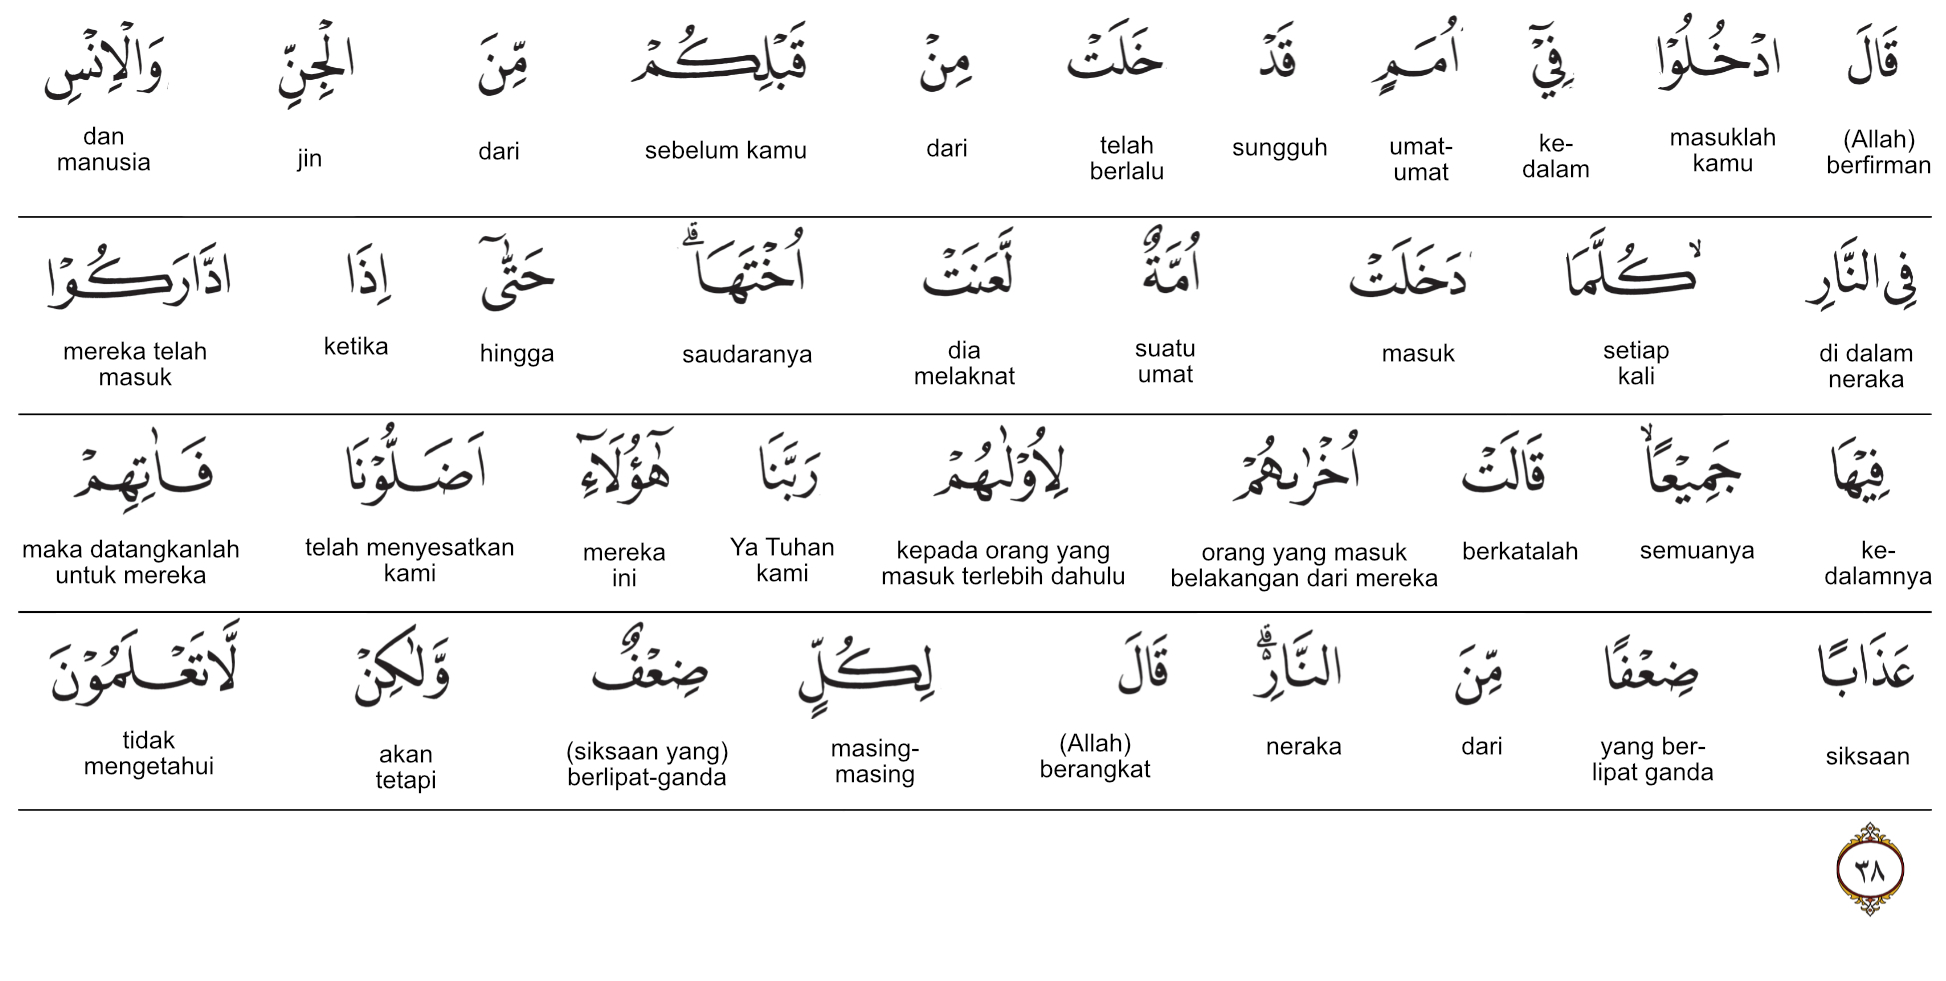 قَالَ ادْخُلُوْا فِيْٓ اُمَمٍ قَدْ خَلَتْ مِنْ قَبْلِكُمْ مِّنَ الْجِنِّ وَالْاِنْسِ
(Allah) berfirman masuklah kamu ke-dalam umat-umat sungguh telah berlalu dari sebelum kamu dari jin dan manusia
فِى النَّارِ ۙ كُلَّمَا دَخَلَتْ اُمَّةٌ لَّعَنَتْ اُخْتَهَا ۗ حَتّٰىٓ اِذَا ادَّارَكُوْا
di dalam neraka setiap kali masuk suatu umat dia melaknat saudaranya hingga ketika mereka telah masuk
فِيْهَا جَمِيْعًا ۙ قَالَتْ اُخْرٰىهُمْ لِاُوْلٰىهُمْ رَبَّنَا هٰٓؤُلَاۤءِ اَضَلُّوْنَا فَاٰتِهِمْ
ke-dalamnya semuanya berkatalah orang yang masuk belakangan dari mereka kepada orang yang masuk terlebih dahulu Ya Tuhan kami mereka ini telah menyesatkan kami maka datangkanlah untuk mereka
عَذَابًا ضِعْفًا مِّنَ النَّارِ ۗ قَالَ لِكُلٍّ ضِعْفٌ وَّلٰكِنْ لَّا تَعْلَمُوْنَ
siksaan yang ber-lipat ganda dari neraka (Allah) berangkat masing-masing (siksaan yang) berlipat-ganda akan tetapi tidak mengetahui
٣٨